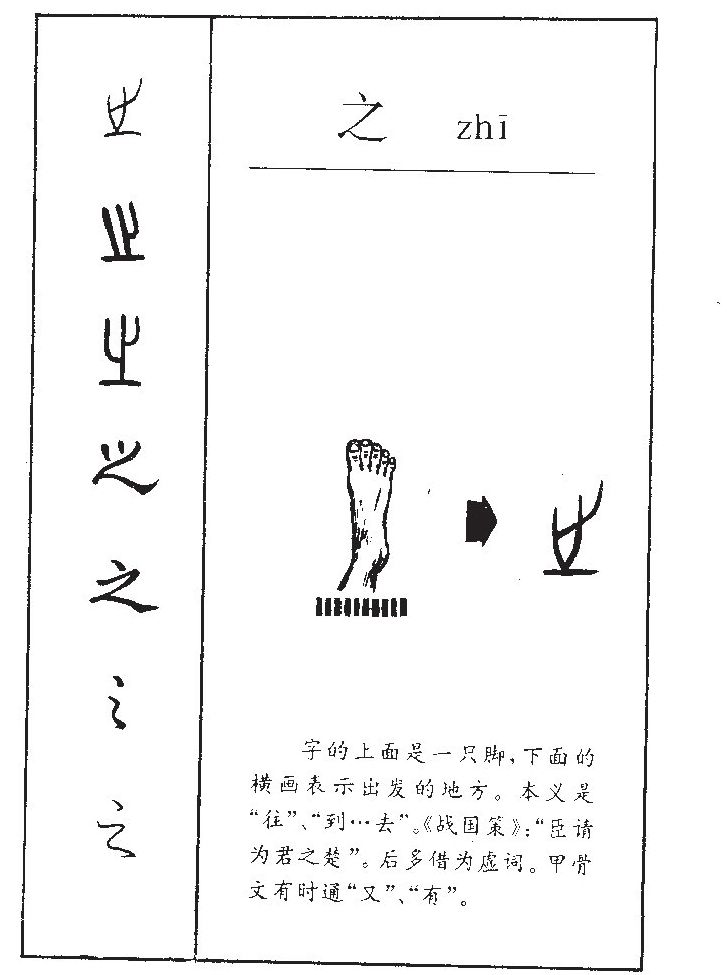 之 zhī
字的上面是一只脚，下面的
横画表示出发的地方。本义是
“往”、“到…去”。《战国策》：“臣请
为君之楚”。后多借为虚词。甲骨
文有时通“又”、“有”。